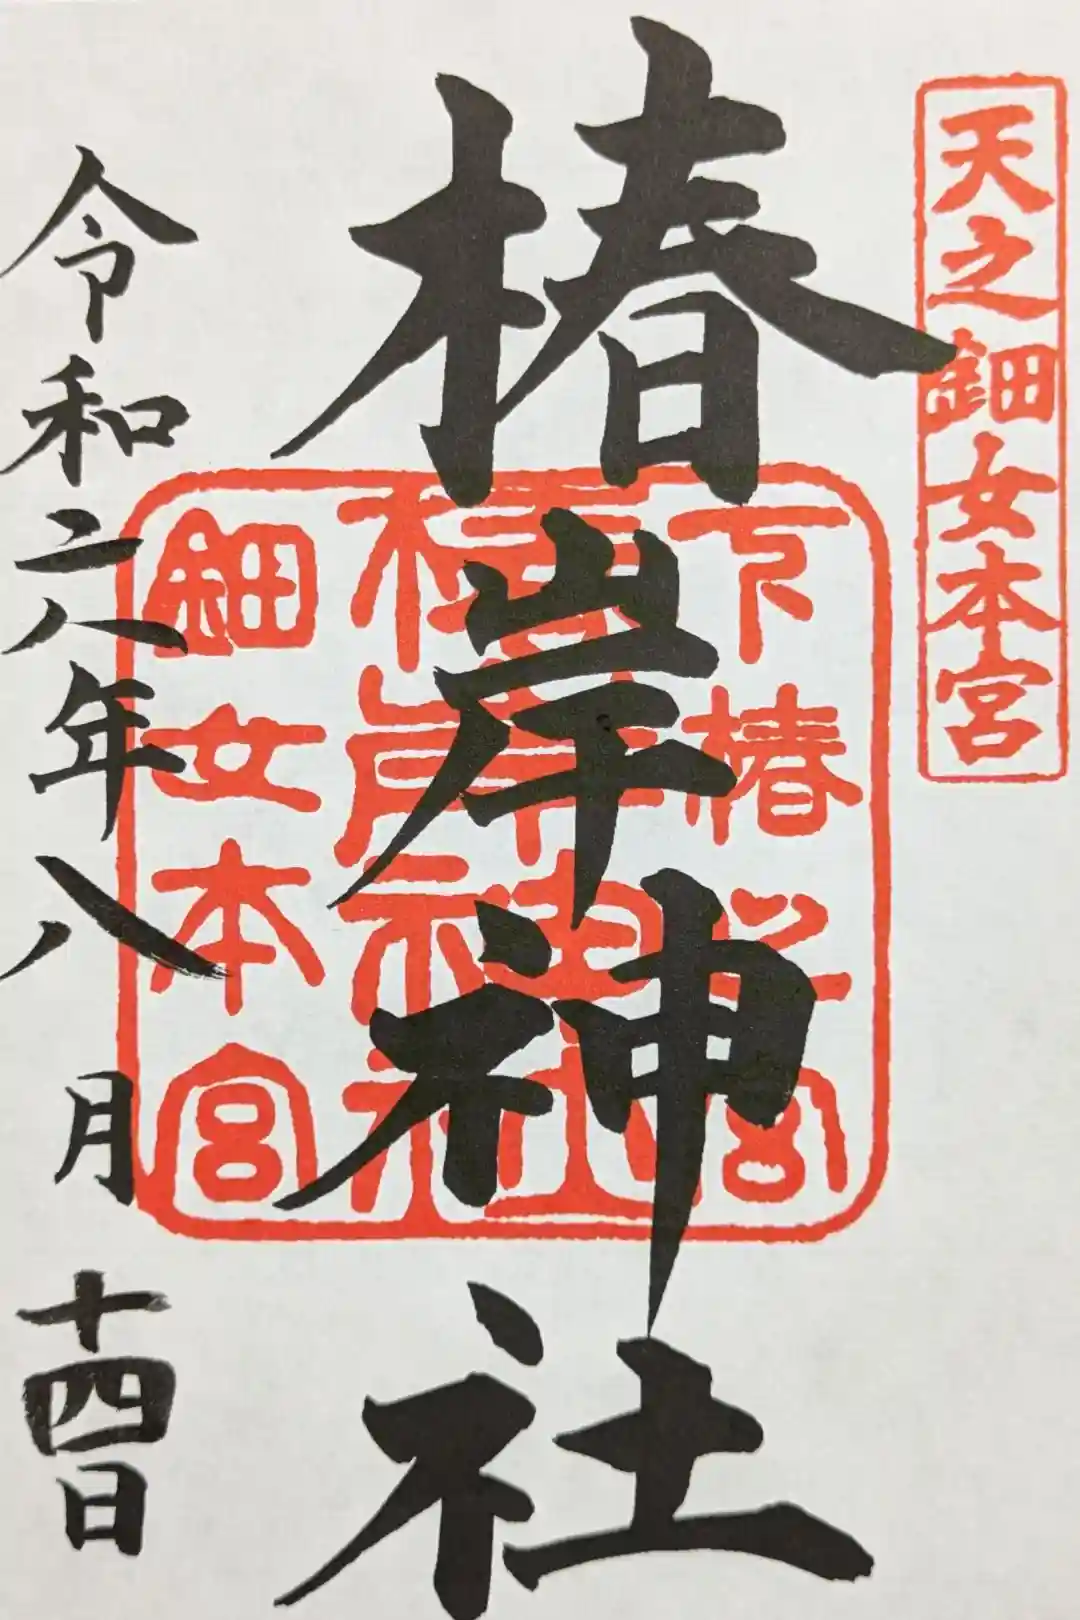 天之鈿女本宮
椿岸神社
下椿宮
椿岸神社
鈿女本宮
令和六年八月十四日